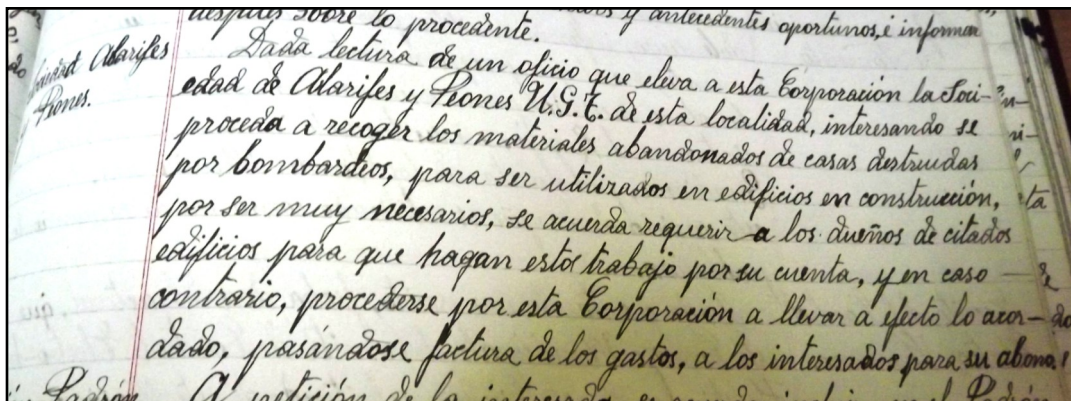 despues sobre lo procedente. y antecedentes oportunos, é informar
Alarifes
y Peones.
Dada lectura de un oficio que eleva a esta Corporación la Soci-
edad de Alarifes y Peones U.G.T. de esta localidad, interesando se
proceda a recoger los materiales abandonados de casas destruidas
por bombardeos, para ser utilizados en edificios en construcción,
por ser muy necesarios, se acuerda requerir a los dueños de citados
edificios para que hagan estos trabajo por su cuenta, y en caso
contrario, procederse por esta Corporación a llevar a efecto lo acor-
dado, pasándose factura de los gastos, a los interesados para su abono.
Padrón A petición de la interesada se acuerda incluir en el Padrón